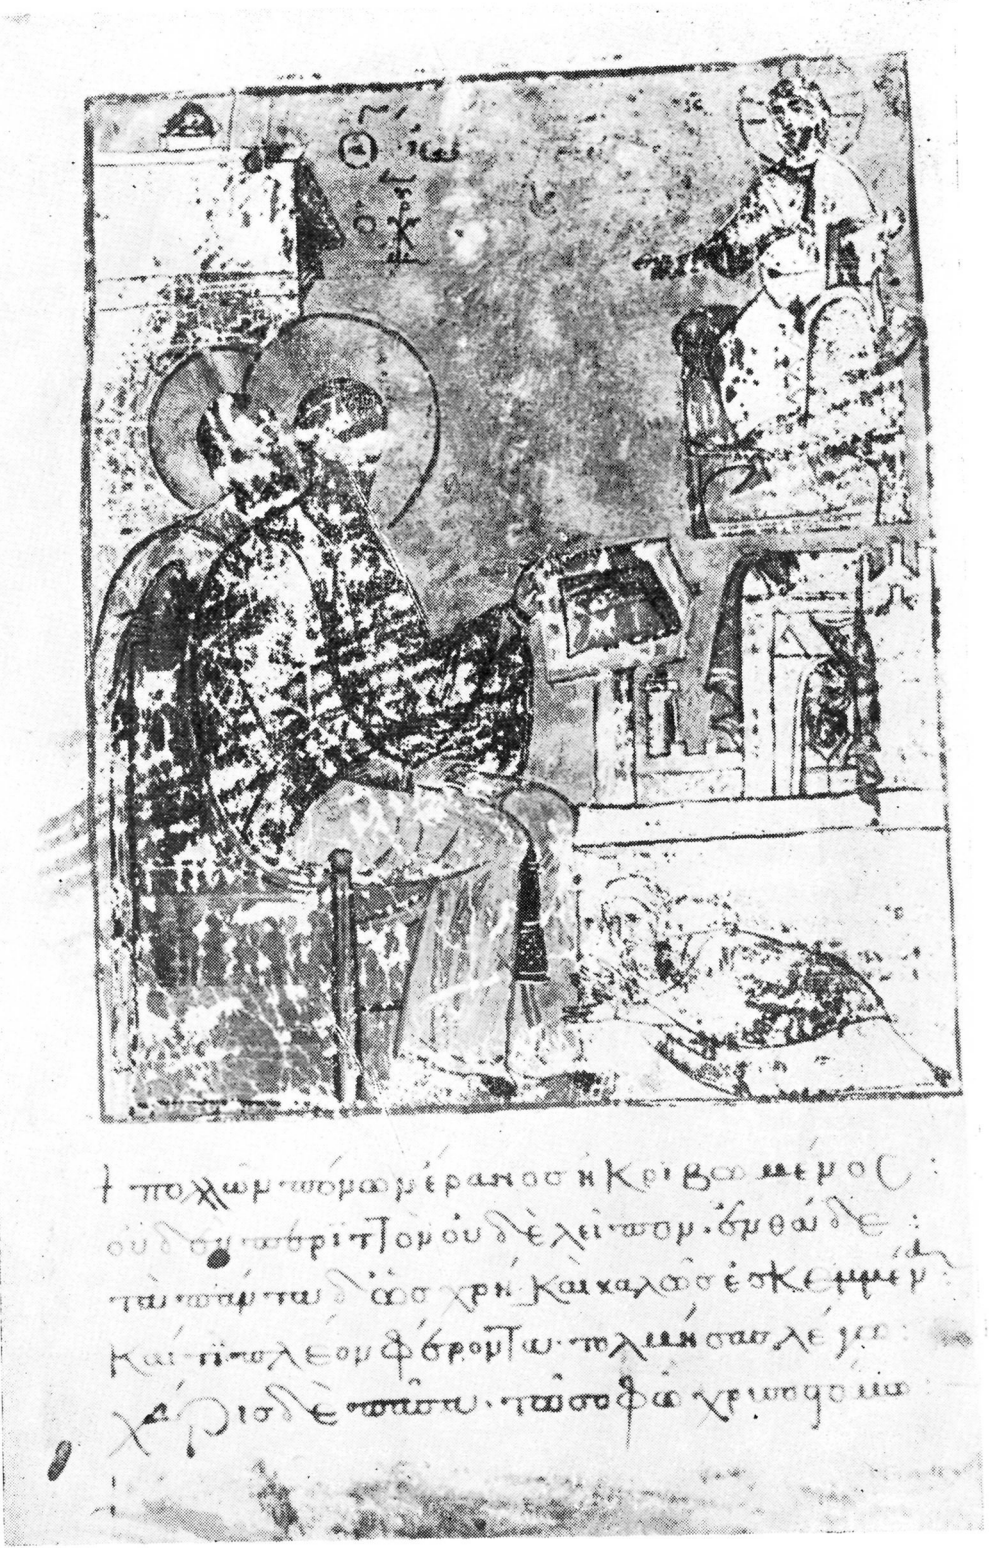 ὁ
ἰω
ὁ
ις
† πολλῶν πόνων ἔρανος ἠκριβωμένος :
οὐδὲν περιττὸν οὐδὲ λεῖπον. ἐνθάδε :
τὰ πάντα δ' ὡς χρή. καὶ καλῶς ἐσκεμμένα :
καί τι πλέον φέροντα. τολμήσας λέγω :
χάρις δὲ πᾶσα. τῶ σοφῶ χρυσοστόμω :